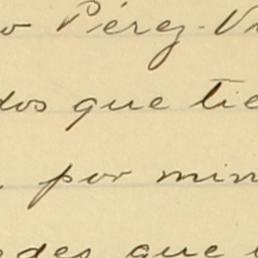 o Pérez-V
dos que tie
por min
edes que